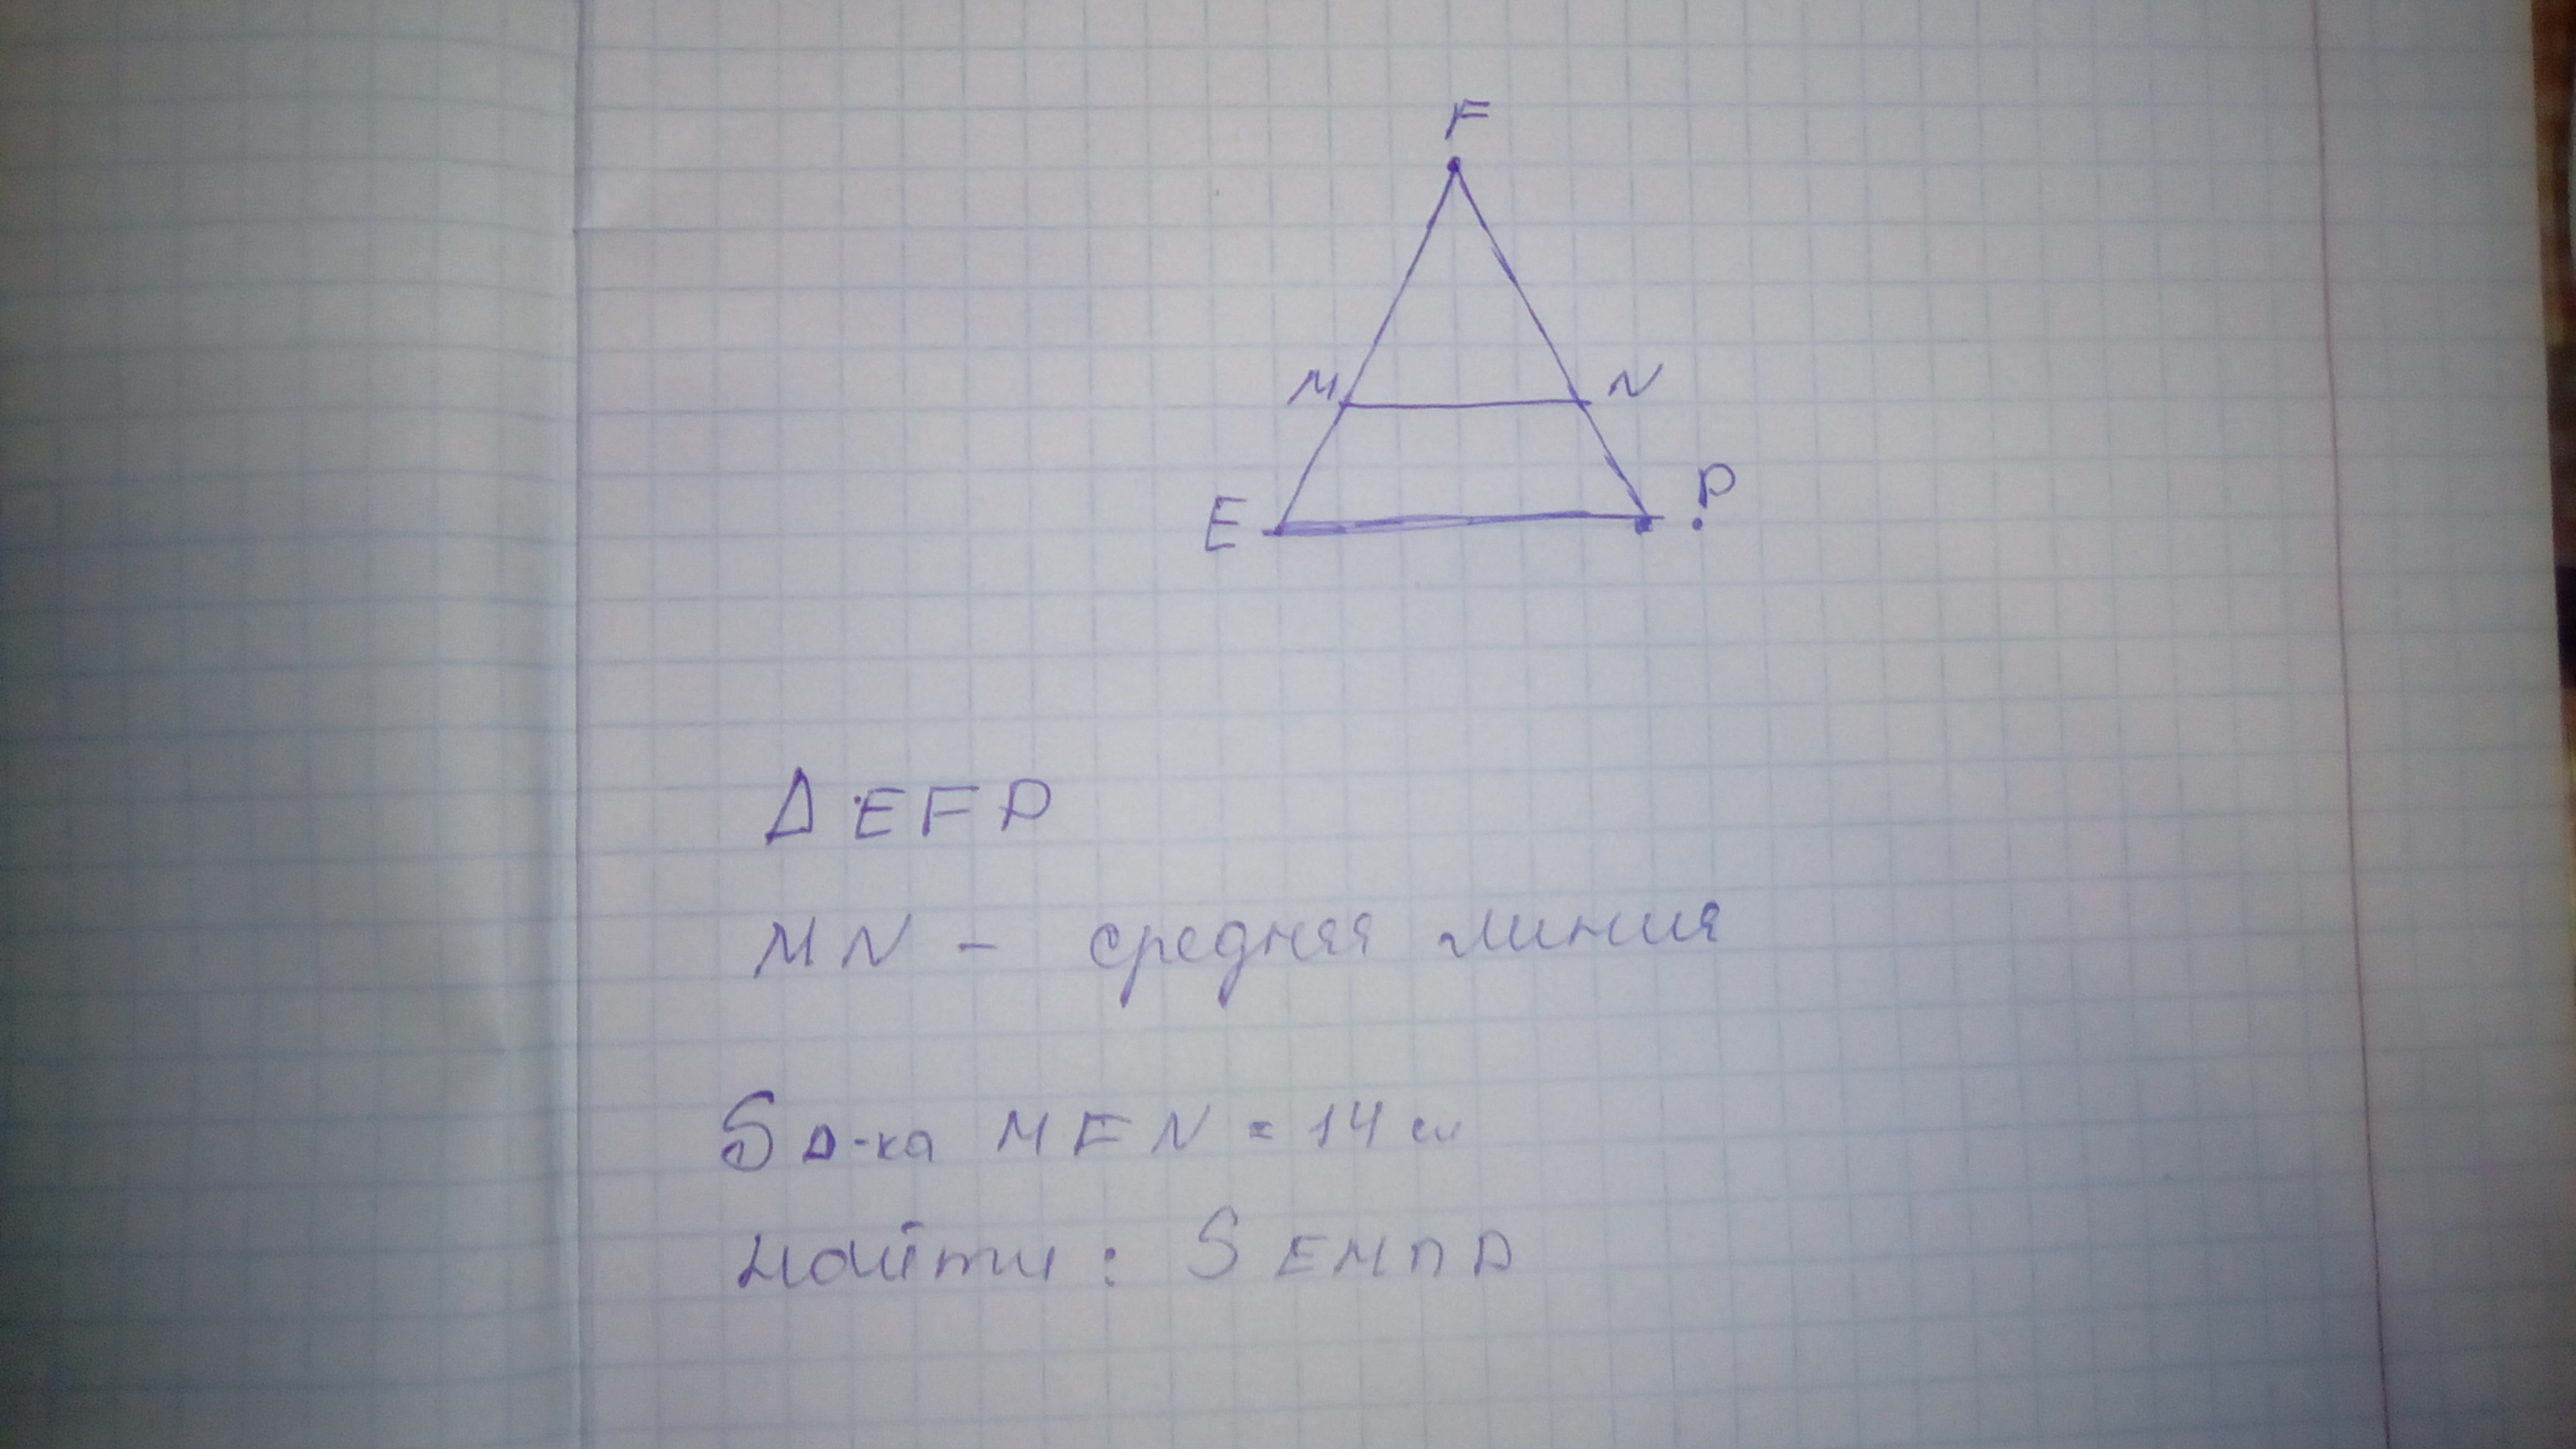 F
M N
E P
Δ EFP
MN - средняя линия
S Δ-ка MFN = 14 см
Найти: S EMNP